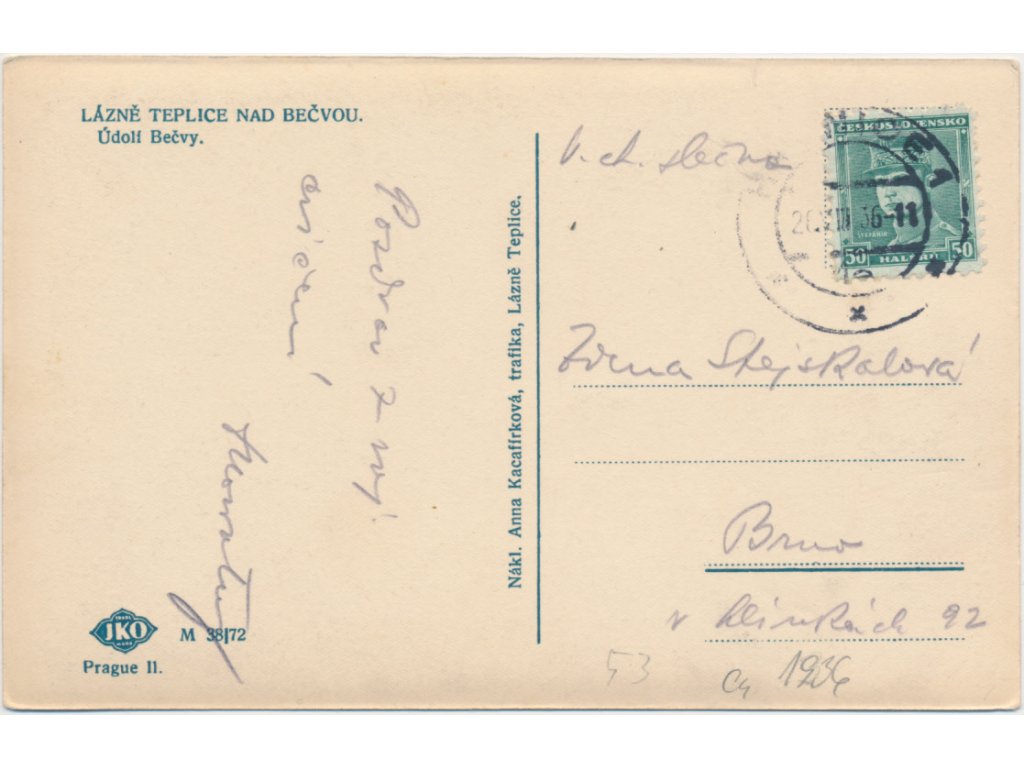 LÁZNĚ TEPLICE NAD BEČVOU.
Údolí Bečvy.
Pozdrav z voj.
cvičení
JKO
M 38|72
Prague II.
Nákl. Anna Kacafírková, trafika, Lázně Teplice.
ČESKOSLOVENSKO
ŠTEFÁNIK
50 HALÉŘŮ 50
V. ct. slečna
Zdena Stejskalová
Brno
v Hlinkách 92
53
1936